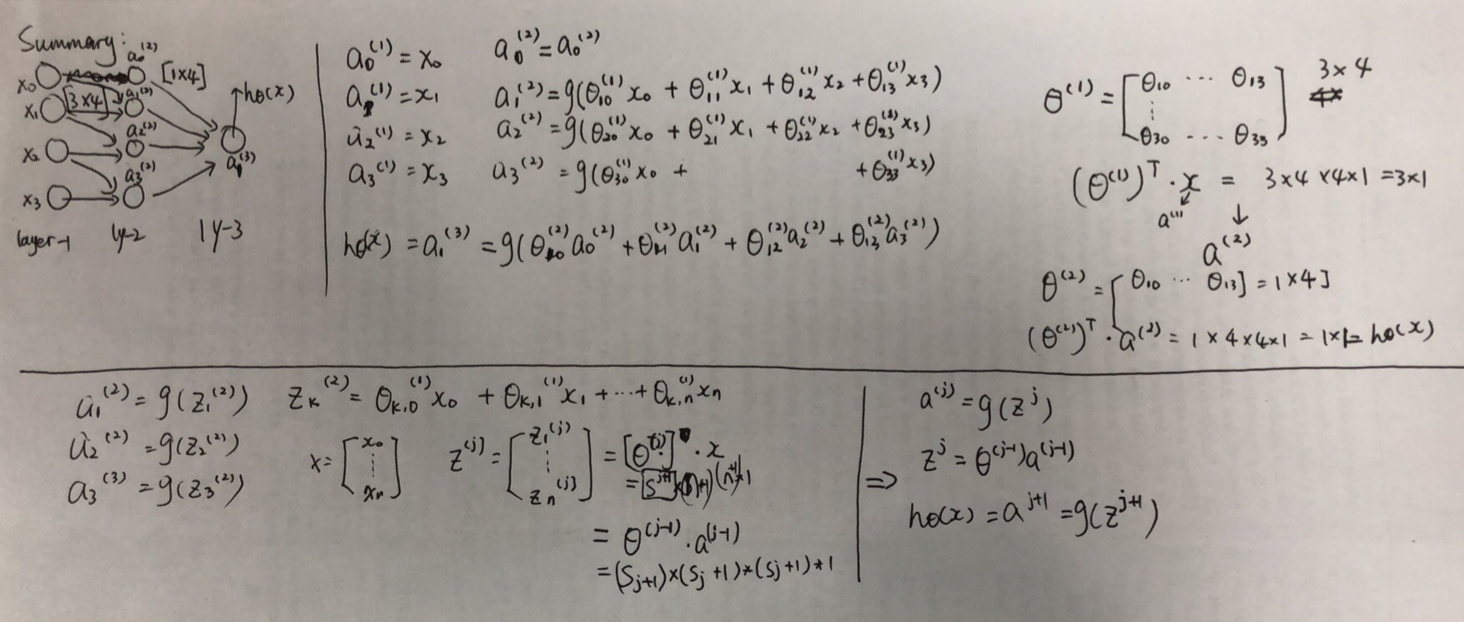 Summary:
x₀ a₀⁽²⁾ [1×4]
x₁ [3×4] a₁⁽²⁾ hθ(x)
x₂ a₂⁽²⁾ a₁⁽³⁾
x₃ a₃⁽²⁾
layer-1 ly-2 ly-3
a₀⁽¹⁾ = x₀ a₀⁽²⁾ = a₀⁽²⁾
a₁⁽¹⁾ = x₁ a₁⁽²⁾ = g(θ₁₀⁽¹⁾x₀ + θ₁₁⁽¹⁾x₁ + θ₁₂⁽¹⁾x₂ + θ₁₃⁽¹⁾x₃)
a₂⁽¹⁾ = x₂ a₂⁽²⁾ = g(θ₂₀⁽¹⁾x₀ + θ₂₁⁽¹⁾x₁ + θ₂₂⁽¹⁾x₂ + θ₂₃x₃)
a₃⁽¹⁾ = x₃ a₃⁽²⁾ = g(θ₃₀⁽¹⁾x₀ + + θ₃₃⁽¹⁾x₃)
hθ(x) = a₁⁽³⁾ = g(θ₁₀⁽²⁾a₀⁽²⁾ + θ₁₁⁽²⁾a₁⁽²⁾ + θ₁₂⁽²⁾a₂⁽²⁾ + θ₁₃⁽²⁾a₃⁽²⁾)
θ⁽¹⁾ = [θ₁₀ ··· θ₁₃ 3×4
⋮
θ₃₀ ··· θ₃₃]
(θ⁽¹⁾)ᵀ · x = 3×4 × 4×1 = 3×1
a⁽¹⁾ ↓
a⁽²⁾
θ⁽²⁾ = [θ₁₀ ··· θ₁₃] = 1×4]
(θ⁽²⁾)ᵀ · a⁽²⁾ = 1×4×4×1 = 1×1 = hθ(x)
a₁⁽²⁾ = g(z₁⁽²⁾) zₖ⁽²⁾ = θₖ,₀⁽¹⁾x₀ + θₖ,₁⁽¹⁾x₁ + ··· + θₖ,ₙ⁽¹⁾xₙ
a₂⁽²⁾ = g(z₂⁽²⁾)
a₃⁽³⁾ = g(z₃⁽²⁾)
x = [x₀ ⋮ xₙ] z⁽ʲ⁾ = [z₁⁽ʲ⁾ ⋮ zₙ⁽ʲ⁾] = [θ⁽ʲ⁾] · x
= θ⁽ʲ⁻¹⁾ · a⁽ʲ⁻¹⁾
= (Sⱼ₊₁)×(Sⱼ+1)*(Sⱼ+1)*1
a⁽ʲ⁾ = g(zʲ)
zʲ = θ⁽ʲ⁻¹⁾a⁽ʲ⁻¹⁾
⇒
hθ(x) = aʲ⁺¹ = g(zʲ⁺¹)